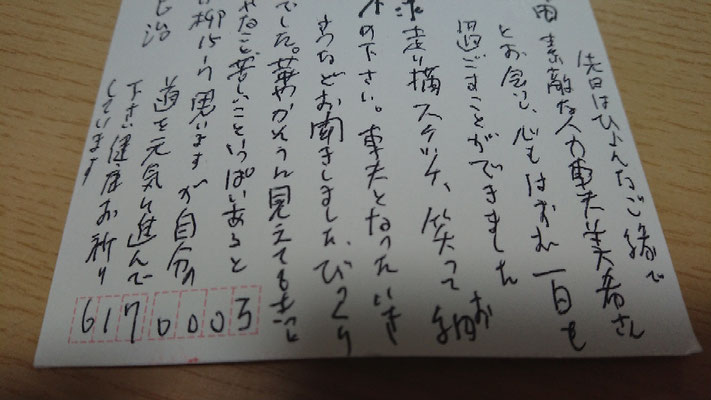 先日はひょんなご縁で
素敵な人力車夫美希さん
とお会い、心もはずむ一日を
過ごすことができました
走り描スケッチ、笑ってお納
下さい。車夫となったいき
さつなどお聞きしました、びっくり
でした。華やかそうに見えてもきっと
なこと苦しいこといっぱいあると
柳15-1 思いますが自分の
治 道を元気に進んで
下さい健康お祈り
しています
6170003